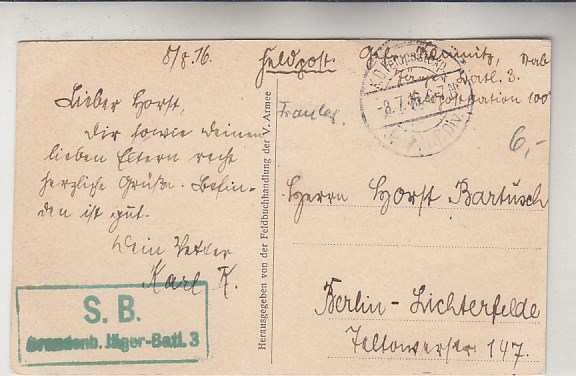 8/7.16.
Feldpost.
Jäger Batl. 3.
station 100
8.7.16.
Frankr.
6,-
Lieber Horst,
Dir sowie Deinen
lieben Eltern recht
herzliche Grüße. Befin-
den ist gut.
Dein Vetter
Karl K.
S. B.
Brandenb. Jäger-Batl. 3
Herausgegeben von der Feldbuchhandlung der V. Armee
Herrn Horst Bartusch
Berlin-Lichterfelde
Teltowerstr 147.